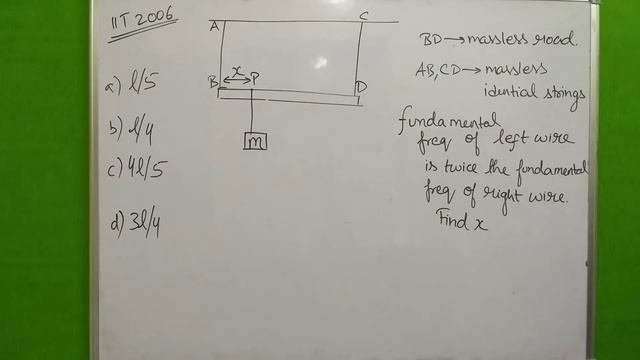 IIT 2006
A
C
B
x
P
D
m
a) l/5
b) l/4
c) 4l/5
d) 3l/4
BD → massless road.
AB, CD → massless
idential strings
fundamental
freq of left wire
is twice the fundamental
freq of right wire.
Find x